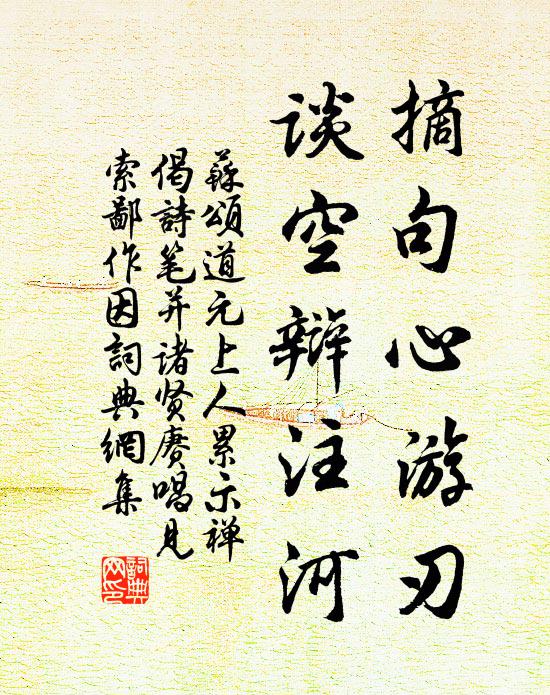 摘句心游刃
谈空辩注河
蘇頌道元上人累示禅
偈詩笔并诸贤赓唱见
索鄙作因詞典網集
詞典
网印